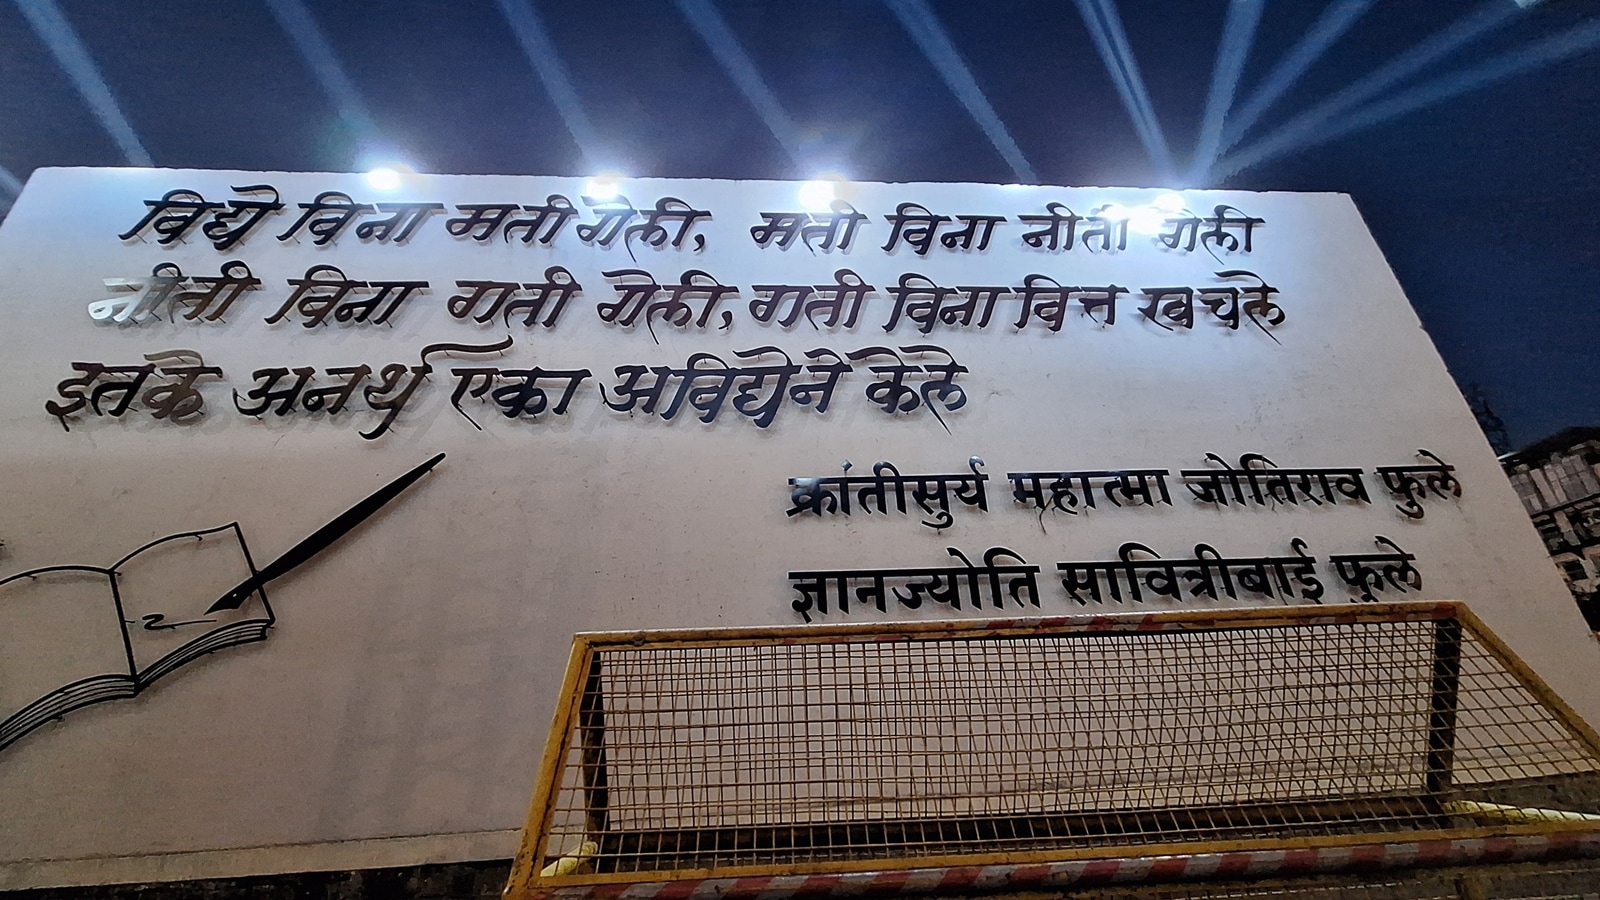 विद्ये विना मती गेली, मती विना नीती गेली
नीती विना गती गेली, गती विना वित्त खचले
इतके अनर्थ एका अविद्येने केले
क्रांतीसुर्य महात्मा जोतिराव फुले
ज्ञानज्योति सावित्रीबाई फुले